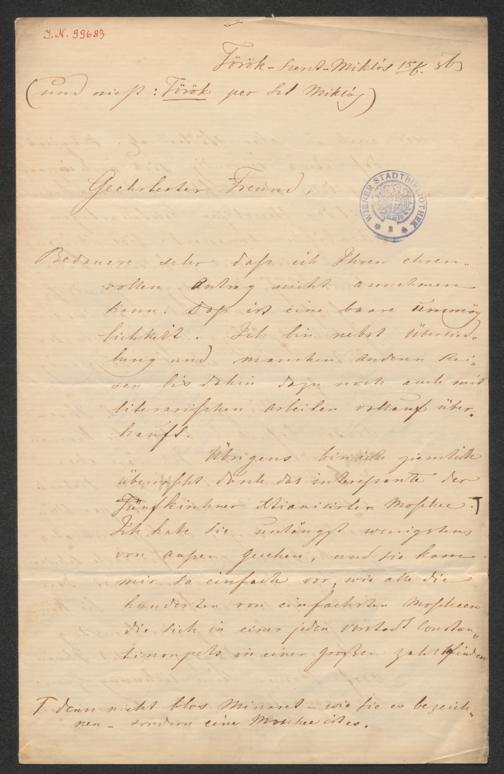 J. N. 99689
Török-Szent-Miklós 15/6.
(und nicht: Török per Set Miklós)
Geehrtester Freund,
WIENER STADTBIBLIOTHEK
Bedauere sehr daß ich Ihren ehren-
vollen Antrag nicht annehmen
kann. Daß ist eine baare Unmög
lichkeit. Ich bin nebst Übersied-
lung und manchen anderen Rei-
sen bis dahin dazu noch auch mit
literarischen Arbeiten vollauf über-
häuft.
Übrigens bin ich ziemlich
überrascht durch das interessante der
Fünfkirchner Moschee. T
Ich habe sie unlängst wenigstens
von außen gesehen, und sie kam
mir so einfach vor, wie alle die
hunderten von einfachsten Moscheen
die sich in einer jeden Vorstadt Constan-
tinonpels in einer großen Zahl finden
T denn nicht blos Minaret – wie Sie es bezeich-
nen – sondern eine Moschee ist es.